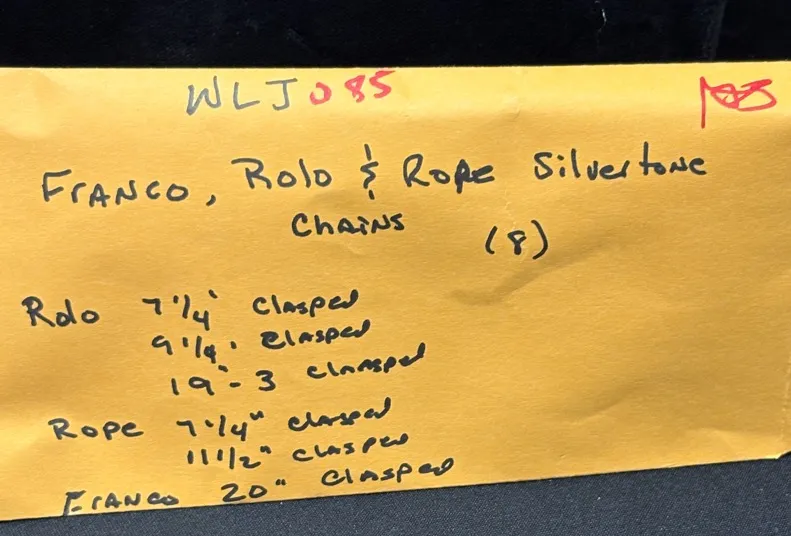 WLJ085
Franco, Rolo & Rope Silvertone
Chains (8)
Rolo 7 1/4" clasped
9 1/4" clasped
19" - 3 clasped
Rope 7 1/4" clasped
11 1/2" clasped
Franco 20" clasped